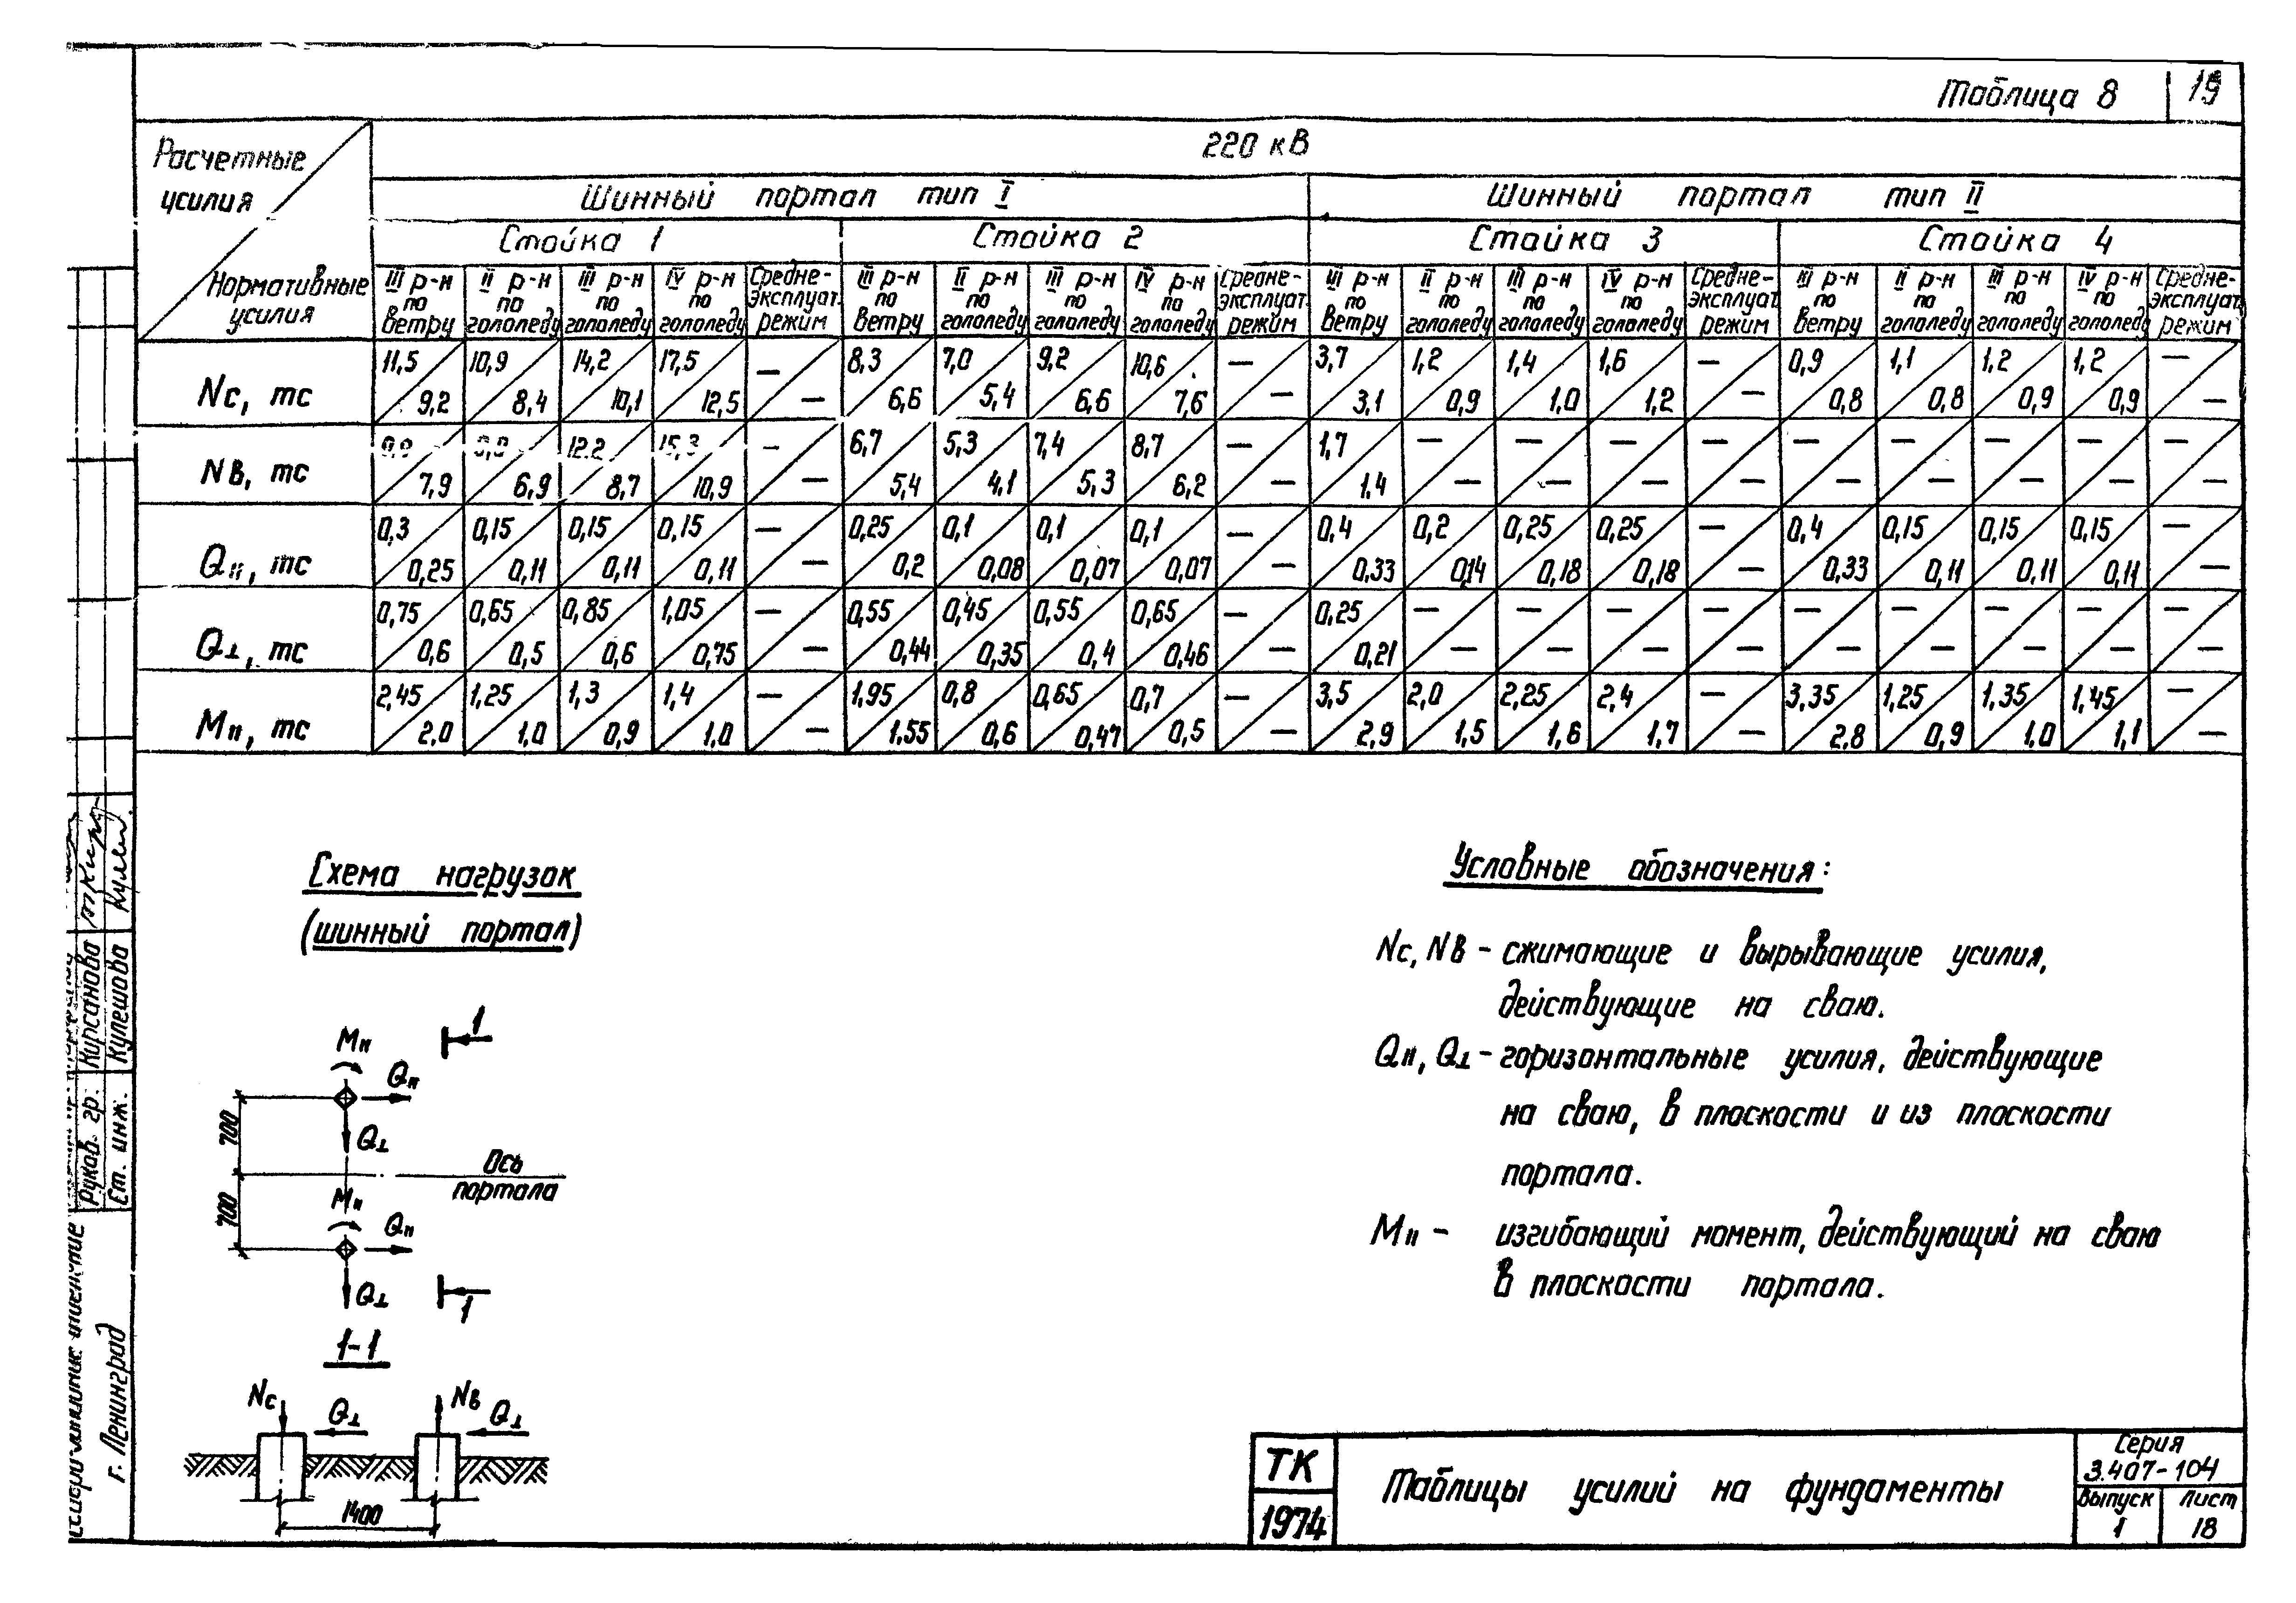 Таблица 8 19
Расчетные усилия
Нормативные усилия
220 кВ
Шинный портал тип I Шинный портал тип II
Стойка 1 Стойка 2 Стойка 3 Стойка 4
III р-н по ветру II р-н по гололеду III р-н по гололеду IV р-н по гололеду Средне-эксплуат. режим III р-н по ветру II р-н по гололеду III р-н по гололеду IV р-н по гололеду Средне-эксплуат. режим III р-н по ветру II р-н по гололеду III р-н по гололеду IV р-н по гололеду Средне-эксплуат. режим III р-н по ветру II р-н по гололеду III р-н по гололеду IV р-н по гололеду Средне-эксплуат. режим
Nс, тс
11,5 10,9 14,2 17,5 — 8,3 7,0 9,2 10,6 — 3,7 1,2 1,4 1,6 — 0,9 1,1 1,2 1,2 —
9,2 8,4 10,1 12,5 — 6,6 5,4 6,6 7,6 — 3,1 0,9 1,0 1,2 — 0,8 0,8 0,9 0,9 —
Nв, тс
12,2 15,3 — 6,7 5,3 7,4 8,7 — 1,7 — — — — — — — — —
7,9 6,9 8,7 10,9 — 5,4 4,1 5,3 6,2 — 1,4 — — — — — — — — —
Q॥, тс
0,3 0,15 0,15 0,15 — 0,25 0,1 0,1 0,1 — 0,4 0,2 0,25 0,25 — 0,4 0,15 0,15 0,15 —
0,25 0,11 0,11 0,11 — 0,2 0,08 0,07 0,07 — 0,33 0,14 0,18 0,18 — 0,33 0,11 0,11 0,11 —
Q⊥, тс
0,75 0,65 0,85 1,05 — 0,55 0,45 0,55 0,65 — 0,25 — — — — — — — — —
0,6 0,5 0,6 0,75 — 0,44 0,35 0,4 0,46 — 0,21 — — — — — — — — —
М॥, тс
2,45 1,25 1,3 1,4 — 1,95 0,8 0,65 0,7 — 3,5 2,0 2,25 2,4 — 3,35 1,25 1,35 1,45 —
2,0 1,0 0,9 1,0 — 1,55 0,6 0,47 0,5 — 2,9 1,5 1,6 1,7 — 2,8 0,9 1,0 1,1 —
Схема нагрузок
(шинный портал)
М॥
Q॥
1
Q⊥
700
Ось
портала
М॥
Q॥
700
Q⊥
1
1-1
Nс Q⊥ Nв Q⊥
1400
Условные обозначения:
Nс, Nв - сжимающие и вырывающие усилия,
действующие на сваю.
Q॥, Q⊥ - горизонтальные усилия, действующие
на сваю, в плоскости и из плоскости
портала.
М॥ - изгибающий момент, действующий на сваю
в плоскости портала.
Руков. гр. Кирсанова
Ст. инж. Кулешова
г. Ленинград
ТК
1974
Таблицы усилий на фундаменты
Серия
3.407-104
Выпуск Лист
1 18